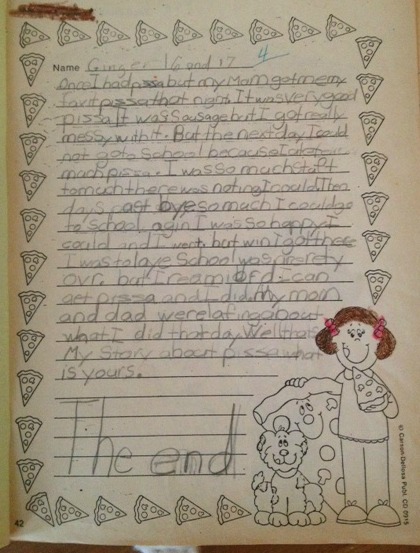 Name Ginger 16 and 17 4
Once I had pissa but my Mom got me my
favrit pissa that night. It was very good
pissa. It was Sausage but I got really
messy with it. But the next day I could
not go to School because I ate
much pissa. I was So much
to much there was noting I could. Then
days past bye so much I could go
to school agin I was so happy I
could and I went. but win I got there
I was to laye School was
ovr. but I I can
get pissa and I did. My mom
and dad were lafing about
what I did that day. Well that's
My Story about pissa what
is yours.
The end
42
© Carson-Dellosa Publ. CD-0915